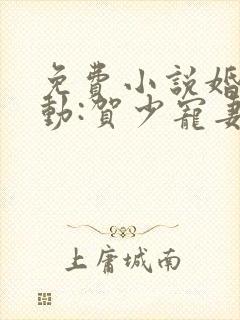 免費小說婚
動:賀少寵妻
上庸城南